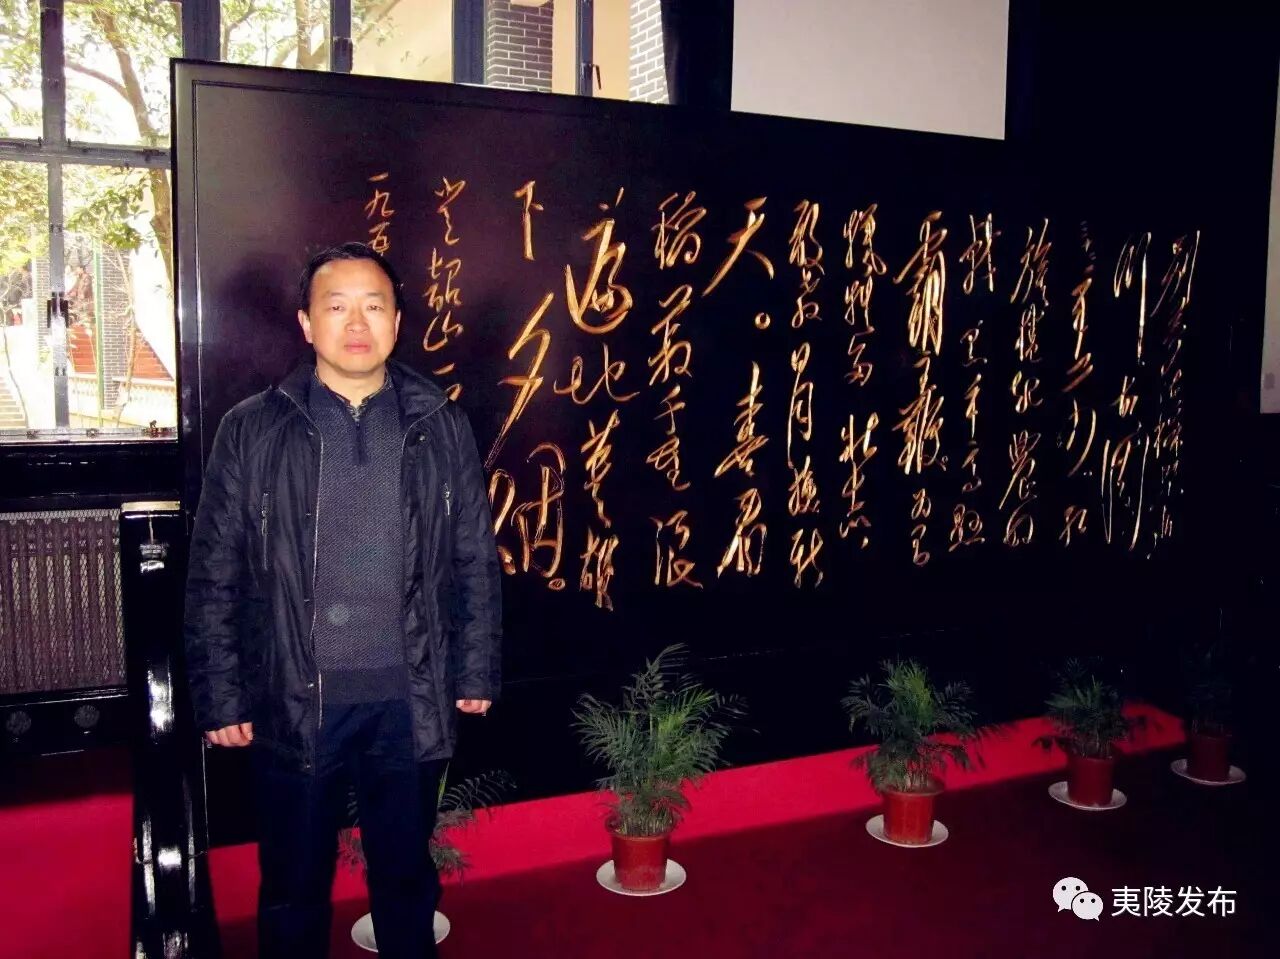 别梦依稀咒逝
川故园
三十二年前。红
旗卷起农奴
戟黑手高悬
霸主鞭。为有
牺牲多壮志
敢教日月换新
天。喜看
稻菽千重浪
遍地英雄
下夕烟。
登韶山
一九五
夷陵发布